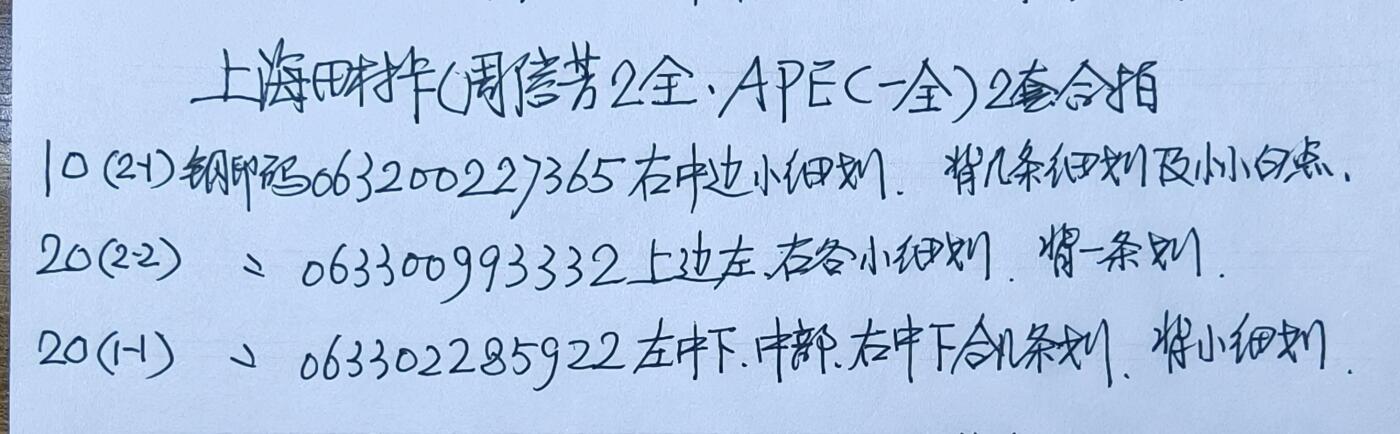 上海田村卡(周信芳2全.APEC一全)2套合拍
10(2-1)钢印码063200227365右中边小细划.背几条细划及小小白点.
20(2-2) 〃 063300993332上边左、右各小细划.背一条划.
20(1-1) 〃 0633022285922左中下.中部.右中下合几条划.背小细划.